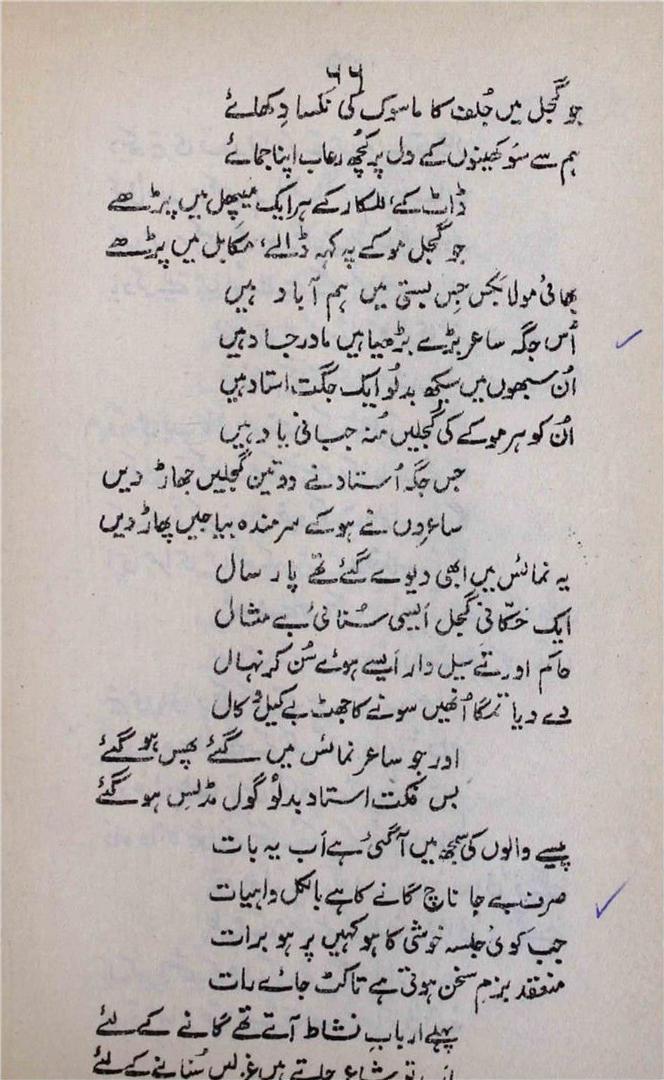 ۶۶
جو گجل میں جُلف کا ماسوک کی نکسا دِکھلائے
ہم سے سَوکھینوں کے دل پر کچُھ رعاب اپنا جمائے
ڈاٹ کے، للکار کے ہر ایک میپھل میں پڑھے
جو گجل موکے پہ کہہ ڈالے، مکابل میں پڑھے
بھائی مولا بکس جس بستی میں ہم آباد ہیں
اُس جگہ ساعر بڑے بڑھیا ہیں مادر جاد ہیں
اُن سبھوں میں سیکھ بدلُو ایک جگت استاد ہیں
اُن کو ہر موکے کی گجلیں مُنہ جبانی یاد ہیں
جس جگہ اُستاد نے دو تین گجلیں جھاڑ دیں
ساعروں نے ہو کے سرمندہ بیاجیں پھاڑ دیں
یہ نمائس میں ابھی دیوے گئے تھے پار سال
ایک حکّانی گجل اَیسی سُنائی بے مثال
حاکم اور تےسیل دار اَیسے ہوئے سُن کر نہال
دے دیا تمگا اُنھیں سونے کا جھٹ بے کیل و کال
اور جو ساعر نمائس میں گئے پھس ہو گئے
بس فکت استاد بدلُو گول مڈلِس ہو گئے
پیسے والوں کی سمجھ میں آ گئی ہے اَب یہ بات
صرف بے جا ناچ گانے کا ہے بالکل واہیات
جب کوئی جلسہ خوشی کا ہو کہیں پر ہو برات
منعقد بزمِ سخن ہوتی ہے تا کٹ جائے رات
پہلے اربابِ نشاط آتے تھے گانے کے لئے
اَب تو شاعر چلتے ہیں غزلیں سُنانے کے لئے